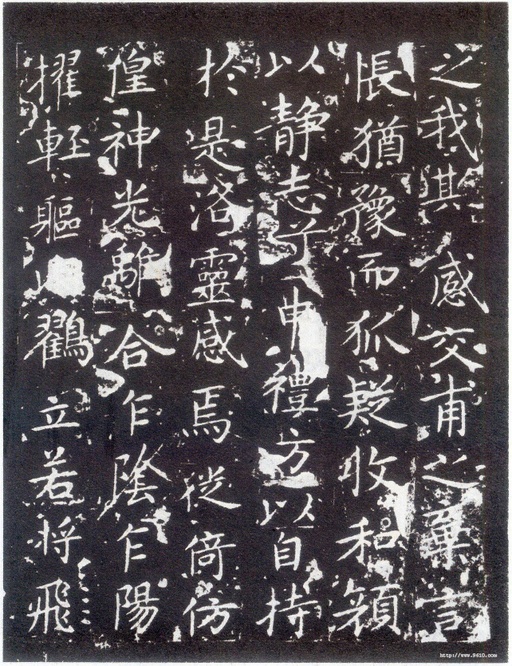 之我其感交甫之棄言
悵猶豫而狐疑收和顏
以静志兮申禮方以自持
於是洛靈感焉徙倚仿
偟神光離合乍陰乍陽
擢輕軀以鶴立若將飛
http://www.9610.com